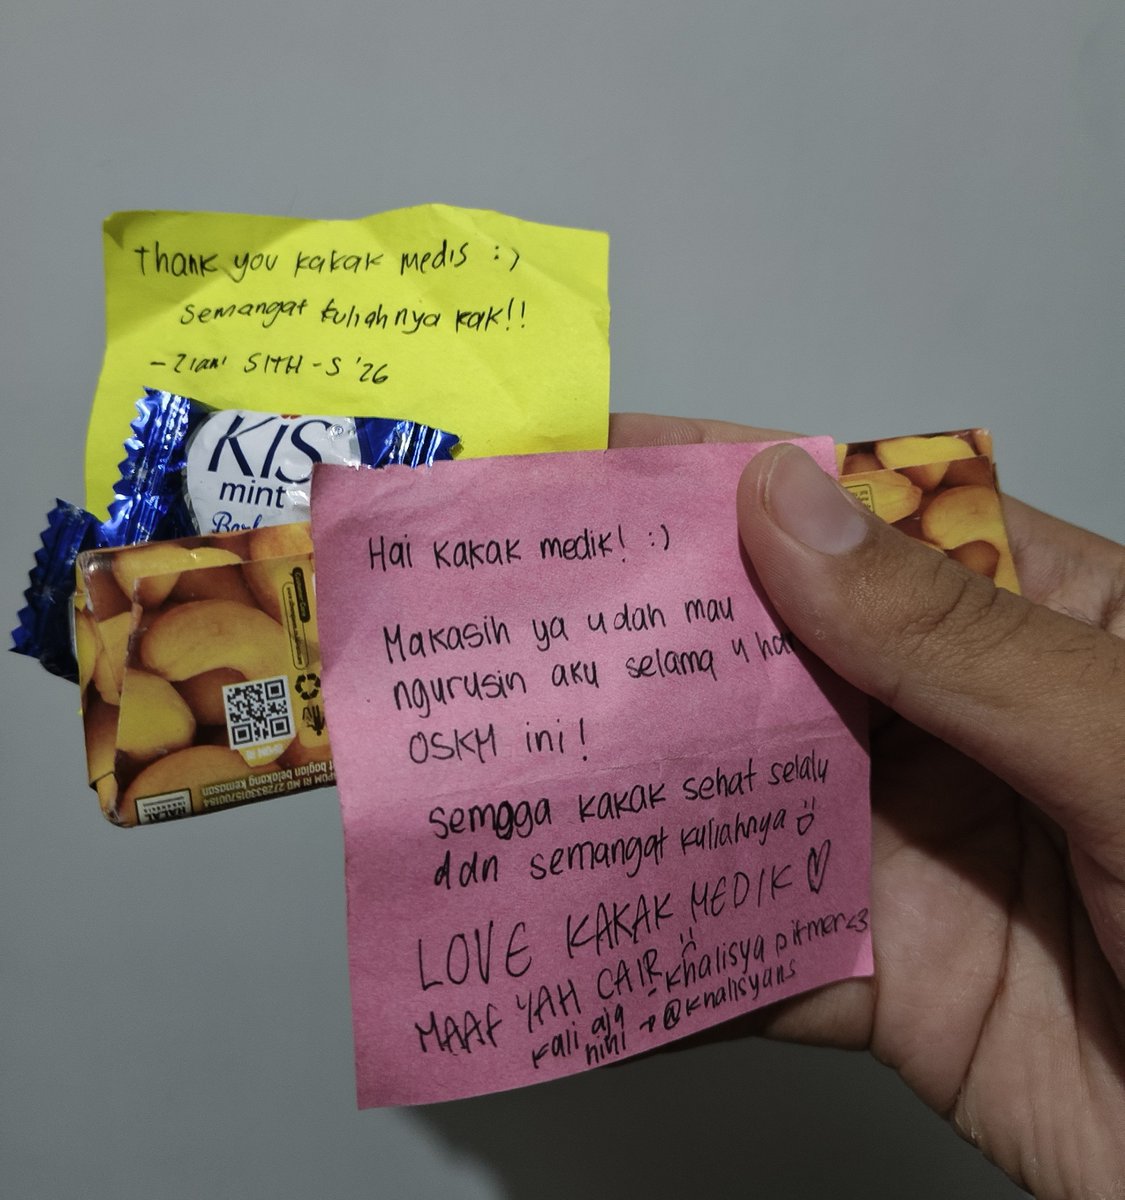 Thank you kakak medis :)
semangat kuliahnya kak!!
- Ziani SITH-S '26
KIS
mint
Hai kakak medik! :)
Makasih ya udah mau
ngurusin aku selama 4 har
OSKM ini!
semoga kakak sehat selalu
dan semangat kuliahnya
LOVE KAKAK MEDIK ♡
MAAF YAH CAIR
- Khalisya pitmer <3
kali aja
nihi → @khalisyans
BPOM RI
BPOM RI MD 272833015700184
t bagian belakang kemasan
HALAL
INDONESIA